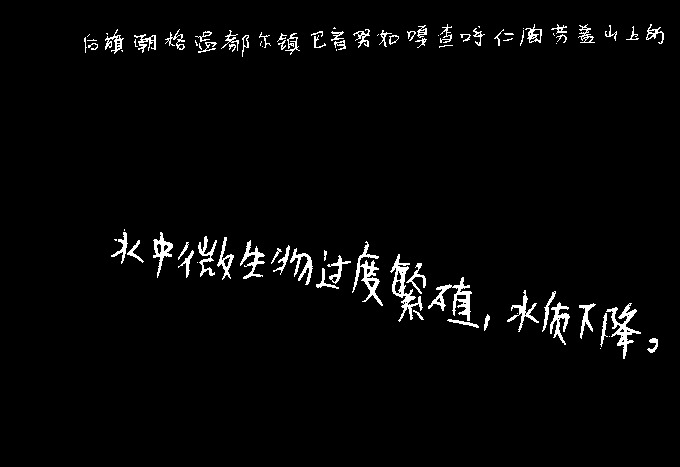 后旗潮格温都尔镇巴音努如嘎查呼仁陶劳盖山上的
水中微生物过度繁殖，水质下降。